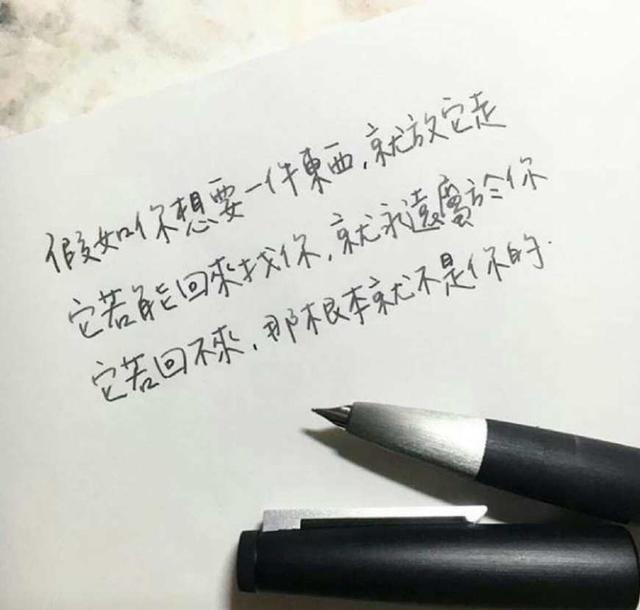 假如你想要一件東西,就放它走
它若能回來找你,就永遠屬於你
它若回不來,那根本就不是你的.